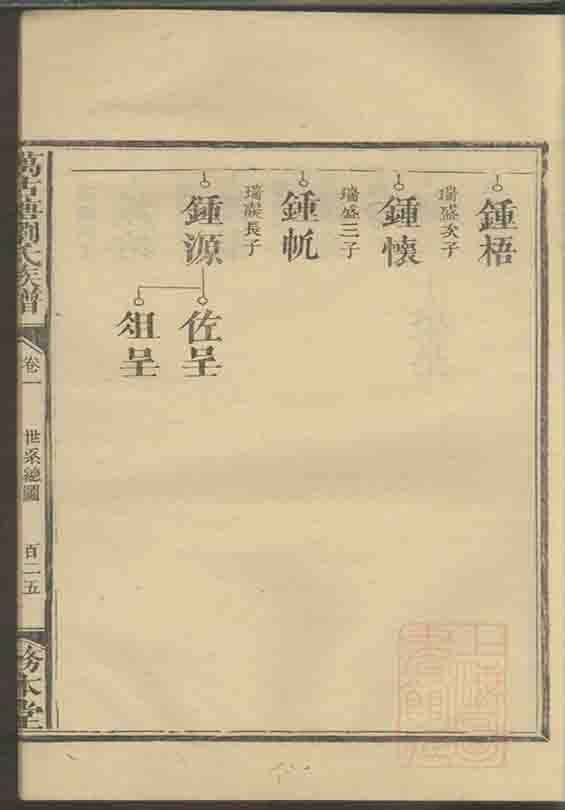 鍾梧
瑞盛次子
鍾懷
瑞盛三子
鍾
長子
鍾源
佐呈
俎呈
萬古塘劉氏族譜
卷一
世系總圖
百二五
務本堂